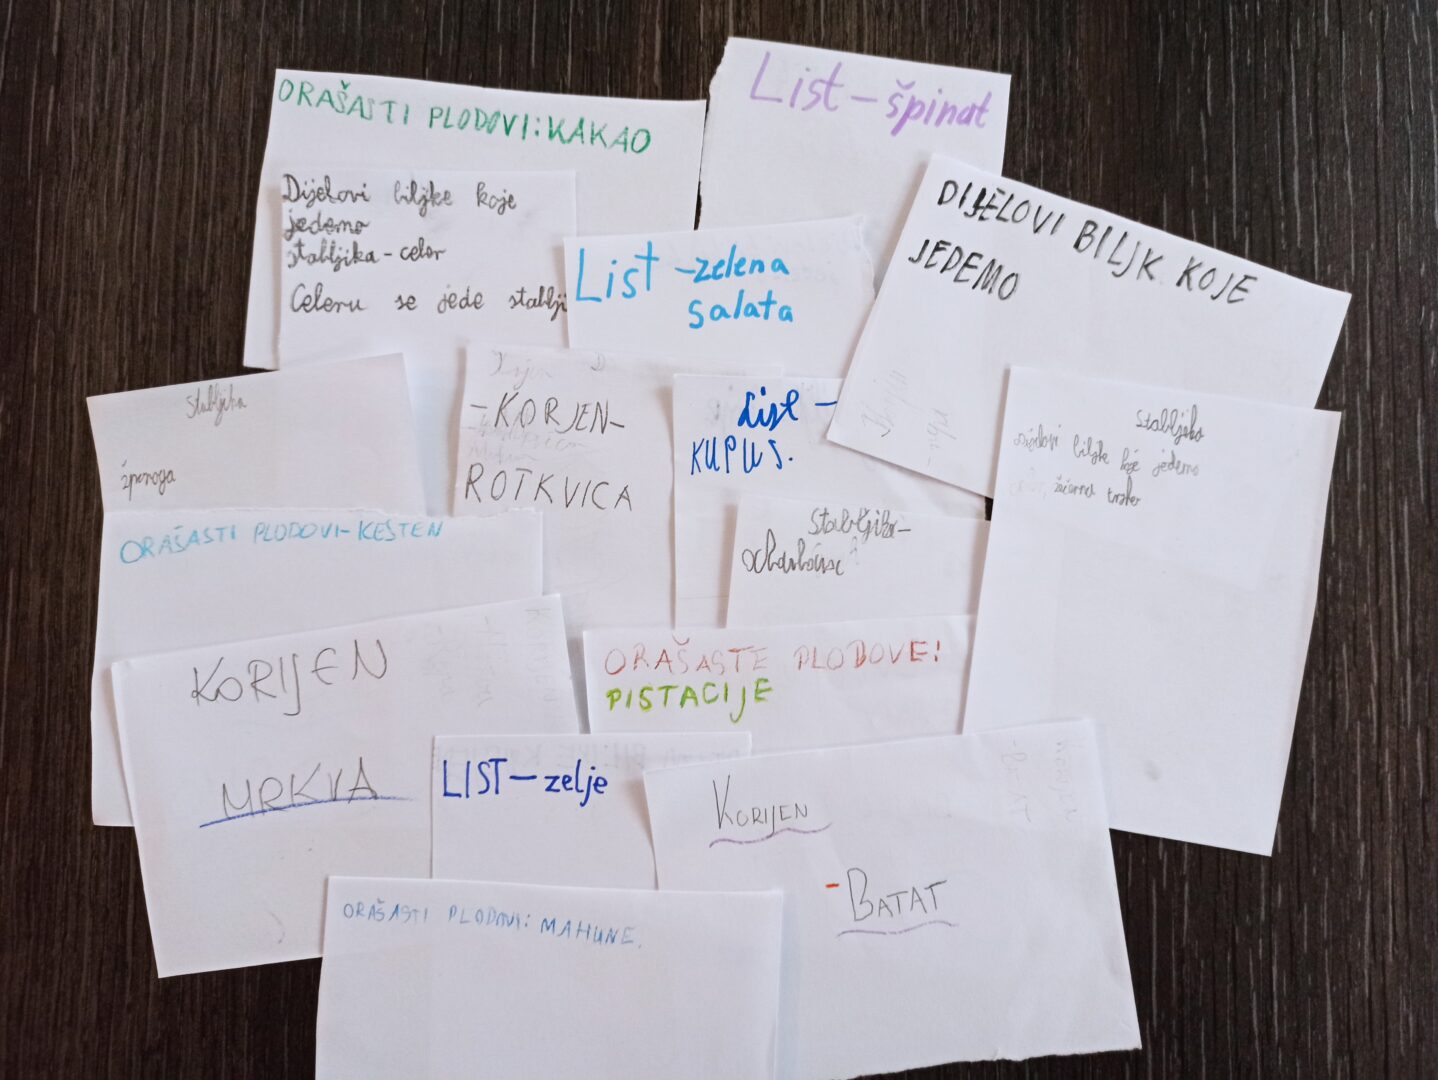 ORAŠASTI PLODOVI: KAKAO
List - špinat
Dijelovi biljke koje
jedemo
stabljika - celer
Celeru se jede stablji
List - zelena
salata
DIJELOVI BILJK KOJE
JEDEMO
Stabljika
- KORJEN -
ROTKVICA
List -
KUPUS.
Stabljika
Dijelovi biljke koje jedemo
ORAŠASTI PLODOVI - KESTEN
Stabljika -
KORIJEN
MRKVA
ORAŠASTE PLODOVE:
PISTACIJE
LIST - zelje
KORIJEN
- BATAT
ORAŠASTI PLODOVI: MAHUNE.